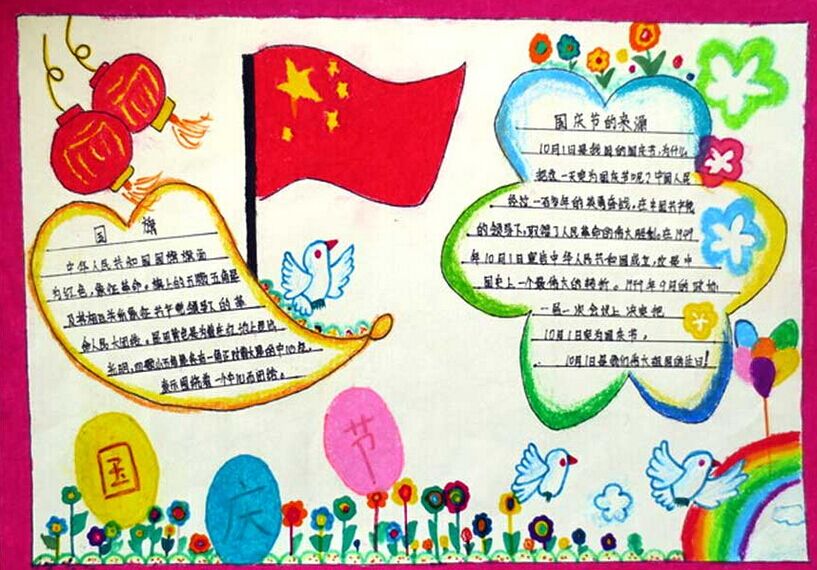 国旗
中华人民共和国国旗旗面
为红色，象征革命。旗上的五颗五角星
及其相互关系象征共产党领导下的革
命人民大团结。星用黄色是为
光明，四颗小五角星各有一角正对着大星的中心点，
表示围绕着一个中心而团结。
国庆节的来源
10月1日是我国的国庆节，为什么
把这一天定为国庆节呢？中国人民
经过一百多年的英勇奋战，在中国共产党
的领导下，取得了人民革命的伟大胜利。在1949
年10月1日宣告中华人民共和国成立，这是中
国史上一个最伟大的转折。1949年9月的政协
一届一次会议上决定把
10月1日定为国庆节。
10月1日是我们伟大祖国的生日！
国
庆
节